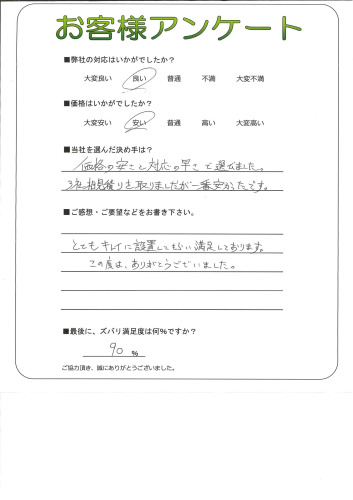 お客様アンケート
■弊社の対応はいかがでしたか？
大変良い 良い 普通 不満 大変不満
■価格はいかがでしたか？
大変安い 安い 普通 高い 大変高い
■当社を選んだ決め手は？
価格の安さと対応の早さで選びました。
3社相見積りを取りましたが一番安かったです。
■ご感想・ご要望などをお書き下さい。
とてもキレイに設置してもらい満足しております。
この度は、ありがとうございました。
■最後に、ズバリ満足度は何%ですか？
90 %
ご協力頂き、誠にありがとうございました。